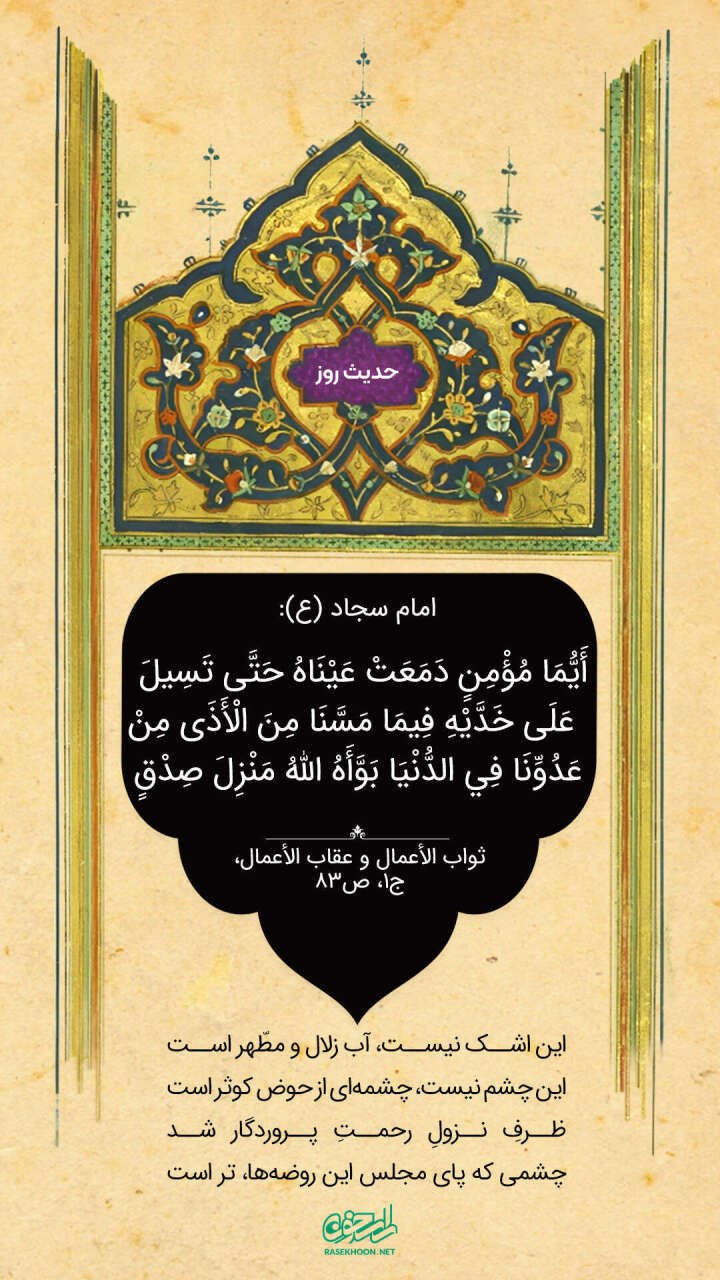 حدیث روز
امام سجاد (ع):
أَيُّمَا مُؤْمِنٍ دَمَعَتْ عَيْنَاهُ حَتَّى تَسِيلَ
عَلَى خَدَّيْهِ فِيمَا مَسَّنَا مِنَ الْأَذَى مِنْ
عَدُوِّنَا فِي الدُّنْيَا بَوَّأَهُ اللهُ مَنْزِلَ صِدْقٍ
ثواب الأعمال و عقاب الأعمال،
ج۱، ص۸۳
این اشک نیست، آب زلال و مطّهر است
این چشم نیست، چشمه‌ای از حوض کوثر است
ظرف نزولِ رحمتِ پروردگار شد
چشمی که پای مجلس این روضه‌ها، تر است
راسخون
RASEKHOON.NET